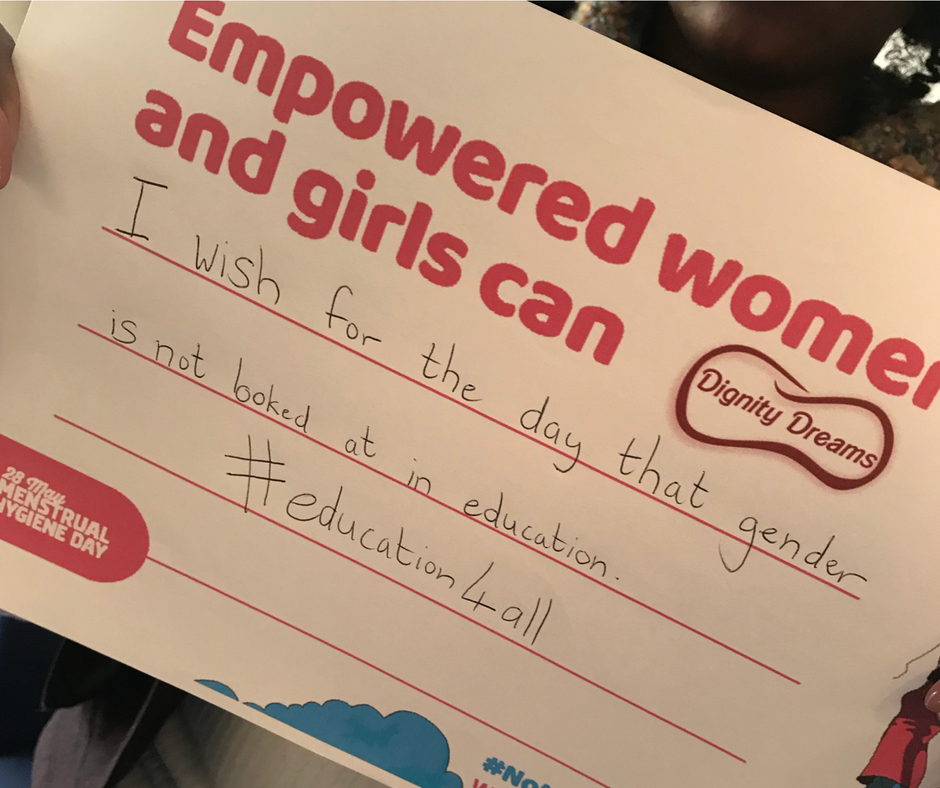 Empowered women
and girls can
Dignity Dreams
I wish for the day that gender
is not looked at in education.
#education4all
28 May
MENSTRUAL
HYGIENE DAY